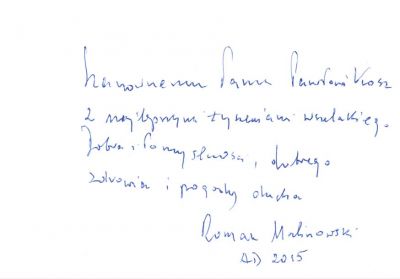 Szanownemu Panu
z najlepszymi życzeniami wszelakiego
Dobra i Pomyślności, dobrego
zdrowia i pogody ducha
Roman Malinowski
AD 2015